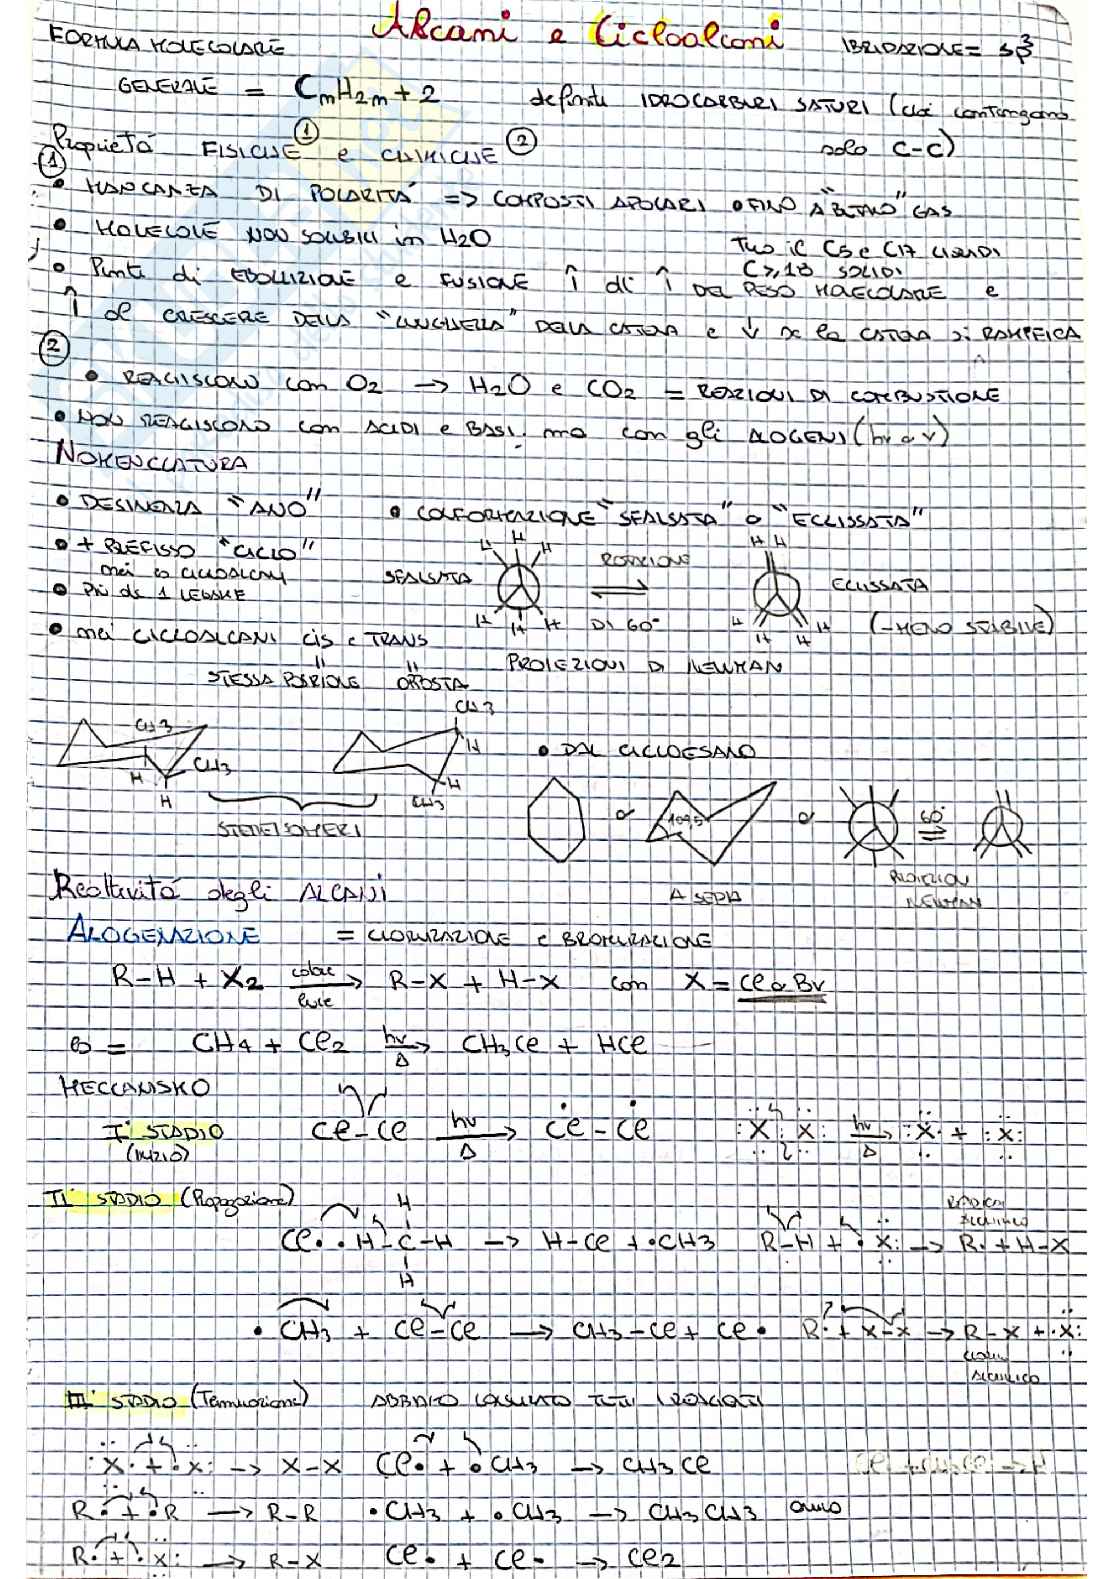 Alcani e Cicloalcani
FORMULA MOLECOLARE IBRIDAZIONE = sp3
GENERALE = CnH2n+2 definiti IDROCARBURI SATURI (cioè contengono
solo C-C)
Proprietà FISICHE ① e CHIMICHE ②
①
• MANCANZA DI POLARITÁ => COMPOSTI APOLARI • FINO A "BUTANO" GAS
• MOLECOLE NON SOLUBILI in H2O TRA il C5 e C17 LIQUIDI
C ≥ 18 SOLIDI
• Punti di EBOLLIZIONE e FUSIONE ↑ di ↑ DEL PESO MOLECOLARE e
↑ al CRESCERE DELLA "LUNGHEZZA" DELLA CATENA e ↓ se la CATENA si RAMIFICA
②
• REAGISCONO con O2 → H2O e CO2 = REAZIONI DI COMBUSTIONE
• NON REAGISCONO con ACIDI e BASI, ma con gli ALOGENI (hv o
NOMENCLATURA
• DESINENZA "ANO" • CONFORMAZIONE "SFALSATA" o "ECLISSATA"
• + PREFISSO "CICLO"
nei CICLOALCANI
• Più di 1 LEGAME
SFALSATA ROTAZIONE DI 60° ECLISSATA
H H H H H H
H H H H H H
(-MENO STABILE)
• nei CICLOALCANI cis e TRANS
PROIEZIONI DI NEWMAN
STESSA POSIZIONE OPPOSTA
CH3 CH3 H H
CH3 H H CH3
STEREISOMERI
• DAL CICLOESANO
o 109,5 o 60°
A SEDIA PROIEZIONI NEWMAN
Reattivitá degli ALCANI
ALOGENAZIONE = CLORURAZIONE e BROMURAZIONE
R-H + X2 calore luce → R-X + H-X con X = Cl o Br
es = CH4 + Cl2 hv Δ → CH3Cl + HCl
MECCANISMO
I° STADIO Cl-Cl hv Δ → Cl - Cl :X : X: hv Δ → :X· + ·X:
(INIZIO)
II° STADIO (Propagazione)
H RADICALE ALCHILICO
Cl· ·H-C-H → H-Cl + ·CH3 R-H + ·X: → R· + H-X
H
·CH3 + Cl-Cl → CH3-Cl + Cl· R· + X-X → R-X + ·X:
ALCHILICO
III° STADIO (Terminazione) ABBIAMO CONSUMATO TUTTI I REAGENTI
:X· + ·X: → X-X Cl· + ·CH3 → CH3Cl
R· + ·R → R-R ·CH3 + ·CH3 → CH3CH3
R· + ·X: → R-X Cl· + Cl· → Cl2